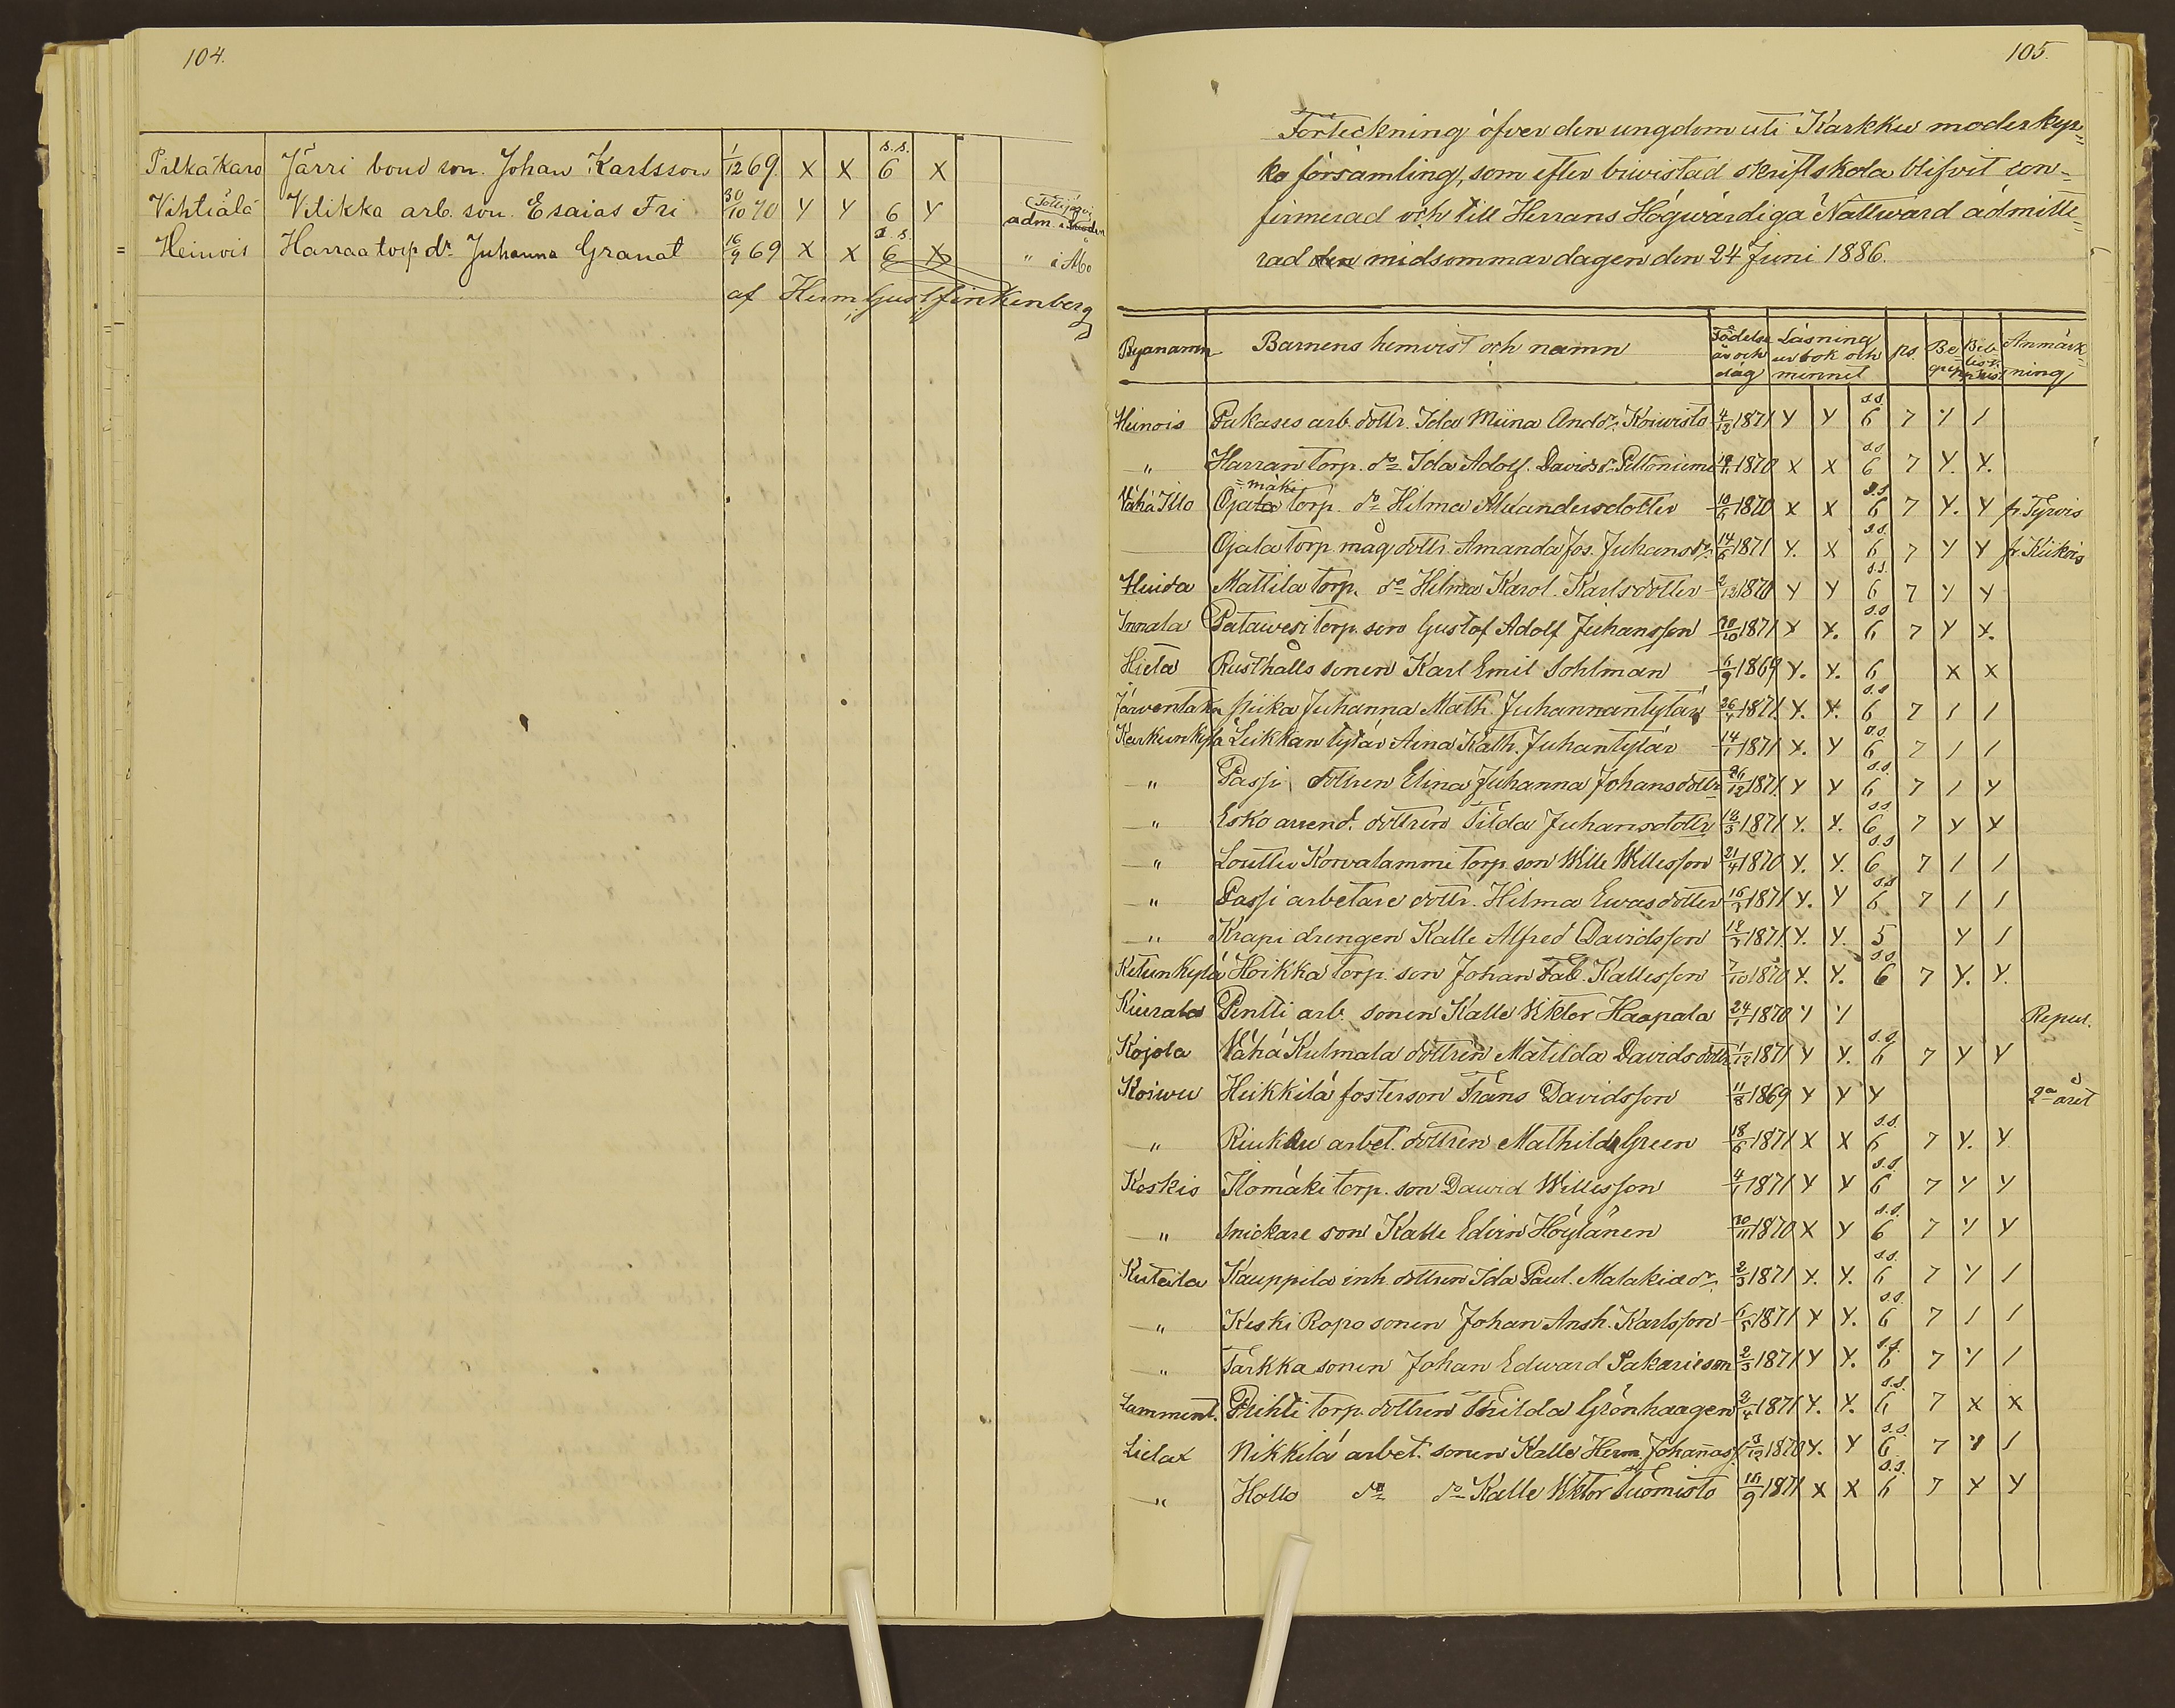 104.
Pilkäkaro Järri bond son. Johan Karlsson 1/12 69. X X s.s. 6 X
Vihtiälä Vilikka arb. son. Esaias Fri 30/10 70 Y Y 6 Y adm.
Heinois Harraa torp dr Juhanna Granat 16/9 69 X X s.s. 6 X " i Åbo
af Herm. Gust. Finkenberg
105.
Förteckning öfver den ungdom uti Karkku moderkyr=
ko församling, som efter biwistad skriftskola blifvit con-
firmerad och till Herrans Högwärdiga Nattward admitte=
rad den midsommardagen den 24 Juni 1886.
Byanamn Barnens hemvist och namn Födelse år och dag Läsning ur bok och minnet ps. Be grepp Anmärk=ning
Heinois Pukases arb. dottr. Ida Miina And. dr. Koiwisto 4/12 1871 Y Y s.s. 6 7 Y 1
" Harran torp. do Ida Adolf. Davids dr Peltoniemi 1870 X X s.s. 6 7 Y. Y.
=mäki
Vähä Illo Ojala torp. do Hilma Alexandersdotter 10/6 1870 X X s.s. 6 7 Y. Y fr. Tyrvis
Ojala torp. måg dottr. Amanda Jos. Juhans dr. 14/6 1871 Y. X s.s. 6 7 Y Y fr. Kiikois
Huida Mattila torp. do Hilma Karol. Karlsdotter 2/12 1870 Y Y s.s. 6 7 Y Y
Innala Patawesi torp. son Gustaf Adolf Juhansson 30/10 1871 X Y. s.s 6 7 Y X.
Hieta Rusthålls sonen Karl Emil Sohlman 6/9 1869 Y. Y. 6 X X
Järventaka piika Juhanna Math. Juhannantytär 26/4 1871. Y. Y. s.s 6 7 1 1
Karkunkylä Leikkan tytär Aina Kath. Juhantytär 14/1 1871 X. Y s.s. 6 7 1 1
" Passi dottren Elina Juhanna Johansdottr 26/12 1871. Y Y s.s. 6 7 1 Y
" Esko arrend. dottren Tilda Juhansdottr 16/3 1871 Y. Y. s.s 6 7 Y X
" Louttu Korvalammi torp. son Wille Willesson 21/4 1870 Y. Y. s.s 6 7 1 1
" Passi arbetare dottr. Hilma Ewasdotter 16/3 1871 Y. Y s.s 6 7 1 1
" Krapi drengen Kalle Alfred Davidsson 1871. Y. Y. 5 Y 1
Ketunkylä Hoikka torp. son Johan Fab. Kallesson 7/10 1870 X. Y. s.s 6 7 Y. Y.
Kiurala Pentti arb. sonen Kalle Viktor Haapala 24/1 1870 Y Y Repul.
Kojola Vähä Kulmala dottren Matilda Davidsdottr. 1/12 1871 Y Y. s.s. 6 7 Y Y
Koiwu Heikkilä fosterson Frans Davidsson 11/8 1869 Y Y Y 2a året
" Riukku arbet. dottren Mathilda Green 18/6 1871 X X s.s. 6 7 Y. Y
Koskis Ilomäki torp. son Dawid Willesson 4/1 1871 Y Y s.s. 6 7 Y Y
" Snickare son Kalle Edvin Höylänen 30/11 1870 X Y s.s. 6 7 Y Y
Kutala Kauppila inh. dottren Ida Paul. Malakias dr. 2/3 1871 X. Y. s.s. 6 7 Y 1
" Keski Ropo sonen Johan Ansh. Karlsson 6/5 1871 Y Y. s.s. 6 7 1 1
" Tärkka sonen Johan Edward Sakarieson 2/3 1871 Y Y. s.s. 6 7 Y 1
Lamment. Prihti torp. dottren Thilda Grönhaagen 2/4 1871 Y. Y. s.s. 6 7 X X
Lielax Nikkilä arbet. sonen Kalle Herm. Johannss. 3/12 1870 Y. Y s.s. 6 7 Y 1
" Hollo do do Kalle Viktor Tuomisto 1871 X X s.s. 6 7 X Y